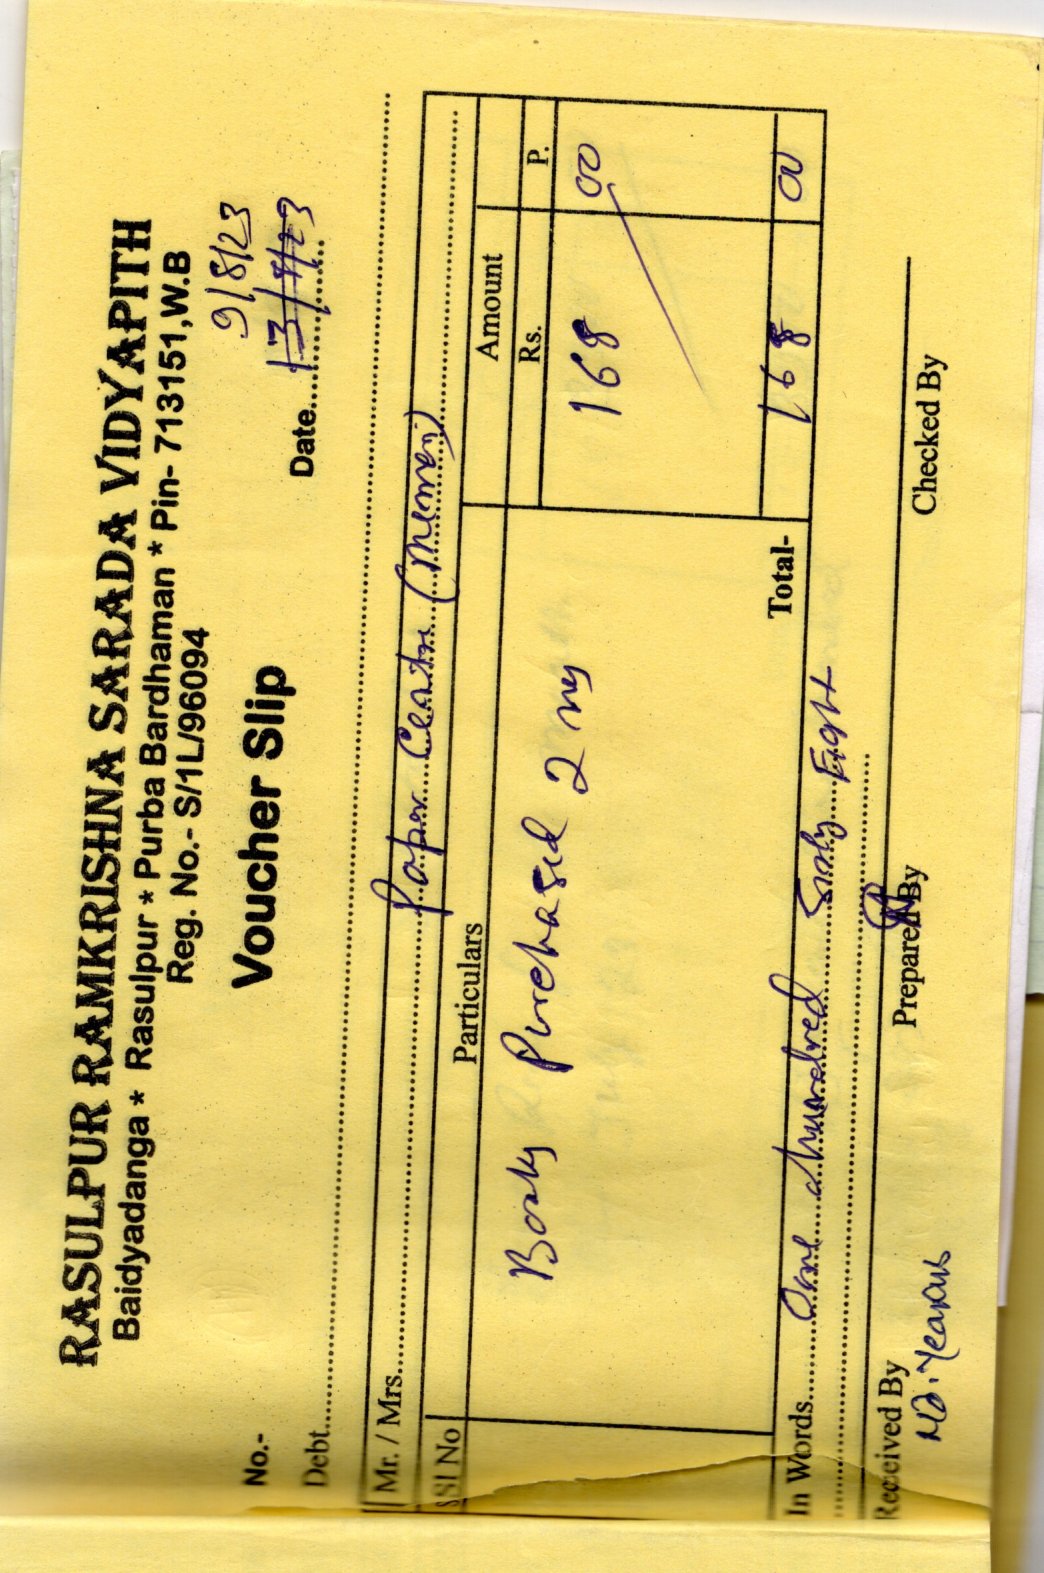 RASULPUR RAMKRISHNA SARADA VIDYAPITH
Baidyadanga * Rasulpur * Purba Bardhaman * Pin- 713151,W.B
Reg. No.- S/1L/96094
9/8/23
No.- Voucher Slip
Debt.......... Date..........
Mr. / Mrs.......... Paper
SSI No Particulars Amount
Rs. P.
Purchased 2 168 00
Total- 168 00
In Words.......... One Hundred Sixty Eight
Received By Prepared By Checked By